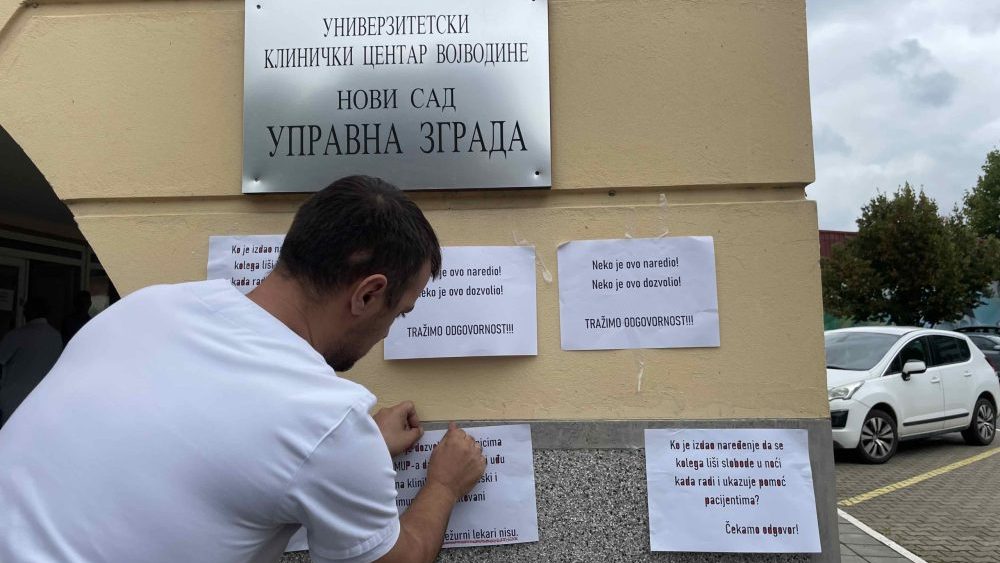 УНИВЕРЗИТЕТСКИ
КЛИНИЧКИ ЦЕНТАР ВОЈВОДИНЕ
НОВИ САД
УПРАВНА ЗГРАДА
Ko je izdao
kolega liši
kada radi i
je ovo naredio!
eko je ovo dozvolio!
TRAŽIMO ODGOVORNOST!!!
Neko je ovo naredio!
Neko je ovo dozvolio!
TRAŽIMO ODGOVORNOST!!!
je dozvol icima
MUP-a da i uđu
na klinik ski i
lovani
ežurni lekari nisu.
Ko je izdao naređenje da se
kolega liši slobode u noći
kada radi i ukazuje pomoć
pacijentima?
Čekamo odgovor!